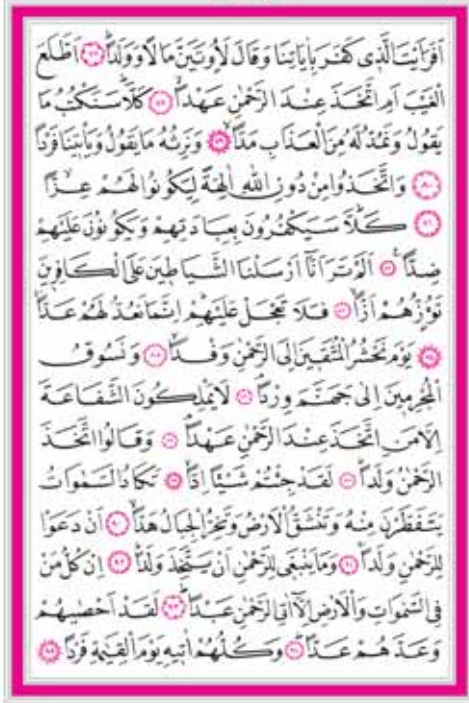 اَفَرَاَيْتَ الَّذ۪ي كَفَرَ بِاٰيَاتِنَا وَقَالَ لَاُو۫تَيَنَّ مَالًا وَوَلَدًاۜ ﴿٧٧﴾ اَطَّلَعَ
الْغَيْبَ اَمِ اتَّخَذَ عِنْدَ الرَّحْمٰنِ عَهْدًاۙ ﴿٧٨﴾ كَلَّاۜ سَنَكْتُبُ مَا
يَقُولُ وَنَمُدُّ لَهُ مِنَ الْعَذَابِ مَدًّاۙ ﴿٧٩﴾ وَنَرِثُهُ مَا يَقُولُ وَيَأْت۪ينَا فَرْدًا
﴿٨٠﴾ وَاتَّخَذُوا مِنْ دُونِ اللّٰهِ اٰلِهَةً لِيَكُونُوا لَهُمْ عِزًّاۙ
﴿٨١﴾ كَلَّاۜ سَيَكْفُرُونَ بِعِبَادَتِهِمْ وَيَكُونُونَ عَلَيْهِمْ
ضِدًّا۟ ﴿٨٢﴾ اَلَمْ تَرَ اَنَّٓا اَرْسَلْنَا الشَّيَاط۪ينَ عَلَى الْكَافِر۪ينَ
تَؤُزُّهُمْ اَزًّاۙ ﴿٨٣﴾ فَلَا تَعْجَلْ عَلَيْهِمْۜ اِنَّمَا نَعُدُّ لَهُمْ عَدًّاۚ
﴿٨٤﴾ يَوْمَ نَحْشُرُ الْمُتَّق۪ينَ اِلَى الرَّحْمٰنِ وَفْدًاۙ ﴿٨٥﴾ وَنَسُوقُ
الْمُجْرِم۪ينَ اِلٰى جَهَنَّمَ وِرْدًاۢ ﴿٨٦﴾ لَا يَمْلِكُونَ الشَّفَاعَةَ
اِلَّا مَنِ اتَّخَذَ عِنْدَ الرَّحْمٰنِ عَهْدًاۢ ﴿٨٧﴾ وَقَالُوا اتَّخَذَ
الرَّحْمٰنُ وَلَدًاۜ ﴿٨٨﴾ لَقَدْ جِئْتُمْ شَيْـًٔا اِدًّاۙ ﴿٨٩﴾ تَكَادُ السَّمٰوَاتُ
يَتَفَطَّرْنَ مِنْهُ وَتَنْشَقُّ الْاَرْضُ وَتَخِرُّ الْجِبَالُ هَدًّاۙ ﴿٩٠﴾ اَنْ دَعَوْا
لِلرَّحْمٰنِ وَلَدًاۚ ﴿٩١﴾ وَمَا يَنْبَغ۪ي لِلرَّحْمٰنِ اَنْ يَتَّخِذَ وَلَدًاۜ ﴿٩٢﴾ اِنْ كُلُّ مَنْ
فِي السَّمٰوَاتِ وَالْاَرْضِ اِلَّٓا اٰتِي الرَّحْمٰنِ عَبْدًاۜ ﴿٩٣﴾ لَقَدْ اَحْصٰيهُمْ
وَعَدَّهُمْ عَدًّاۜ ﴿٩٤﴾ وَكُلُّهُمْ اٰت۪يهِ يَوْمَ الْقِيٰمَةِ فَرْدًا ﴿٩٥﴾